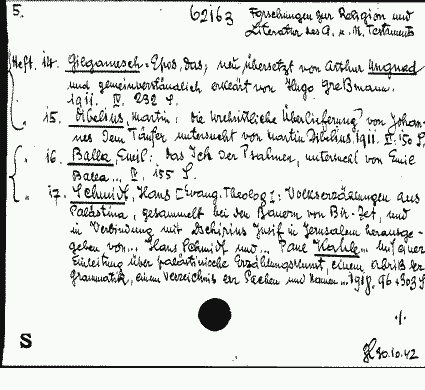 5. 62163 Forschungen zur Religion und
Literatur des A. u. N. Testaments
Heft. 14. Gilgamesch-Epos, das; neu übersetzt von Arthur Ungnad
und gemeinverständlich erklärt von Hugo Greßmann.
1911. IV. 232 S.
" 15. Dibelius, Martin: die urchristliche Überlieferung von Johan-
nes dem Täufer untersucht von Martin Dibelius. 1911. V. 150 S.
" 16. Balla, Emil: das Ich der Psalmen, untersucht von Emil
Balla... IV, 155 S.
" 17. Schmidt, Hans [Evang. Theolog]: Volkserzählungen aus
Palästina, gesammelt bei den Bauern von Bir-Zet, und
in Verbindung mit Dschirius Jusif in Jerusalem herausge-
geben von... Hans Schmidt und... Paul Kahle... mit einer
Einleitung über palästinische Erzählungskunst, einem Abriß der
Grammatik, einem Verzeichnis der Sachen und Namen... 1918. 96 + 303 S.
./.
S
30.10.42